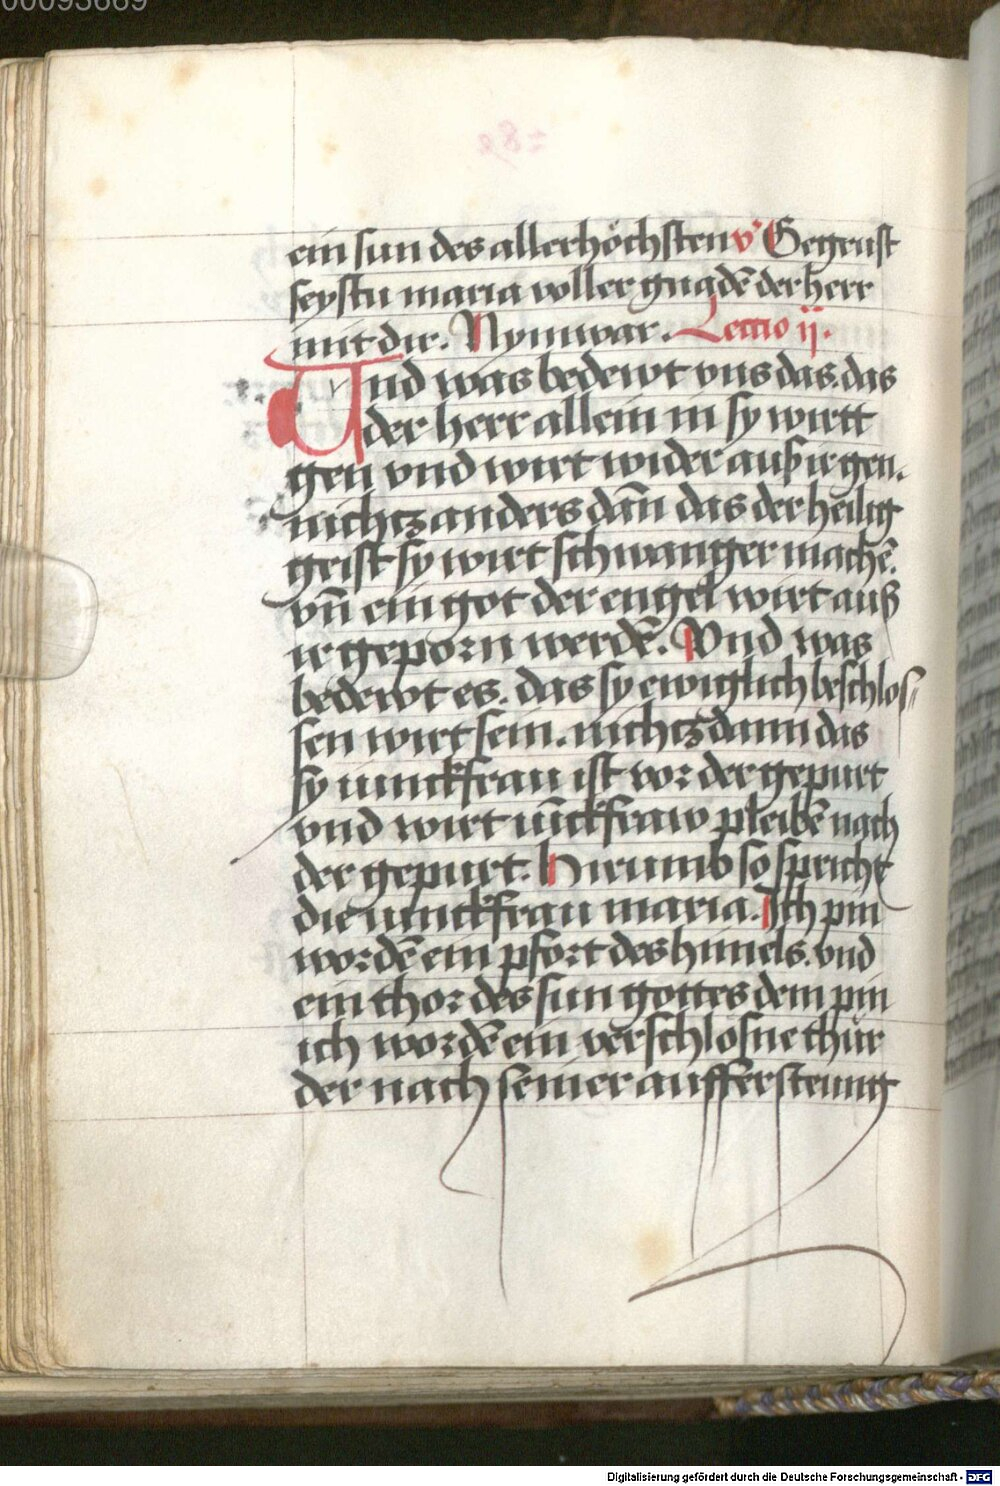 00093669
ein sun des allerhöchsten v Gegrust
seystu maria voller gnadē der herr
mit dir. Nym war. Lectio ij.
Und was bedewt vns das. das
der herr allein in sy wirtt
gen vnd wirt wider auß ir gen.
nichtz anders dañ das der heilig
geist sy wirt schwanger machē.
vñ ein got der engel wirt auß
ir geporn werdē. Vnd was
bedewt es. das sy ewiglich beschlos
sen wirt sein. nichtz dann das
sy iunckfrau ist vor der gepurt
vnd wirt iūckfraw pleibē nach
der gepurt. Hirumb so spricht
die iunckfrau maria. Ich pin
wordē ein pfort des himels. vnd
ein thor des sun gottes dem pin
ich wordē ein verschlosne thür
der nach seiner auffersteung
Digitalisierung gefördert durch die Deutsche Forschungsgemeinschaft - DFG